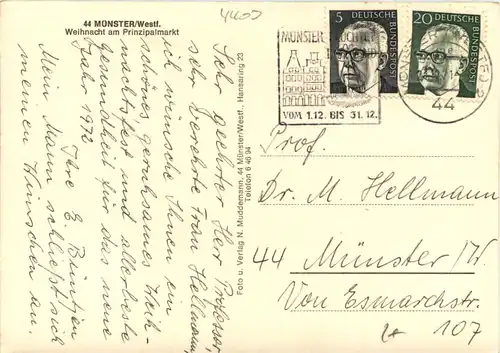 44 MÜNSTER/Westf.
Weihnacht am Prinzipalmarkt
4400
Sehr geehrter Herr Professor,
sehr verehrte Frau Hellmann,
ich wünsche Ihnen ein
schönes, geruhsames Weih-
nachtsfest und allerbeste
Gesundheit für das neue
Jahr 1972.
Ihre E.
Mein Mann schließt sich
meinen Wünschen an.
Foto u. Verlag N. Muddemann, 44 Münster/Westf., Hansaring 23
Telefon 6 46 94
MÜNSTER
VOM 1.12. BIS 31.12.
5 DEUTSCHE BUNDESPOST
20 DEUTSCHE BUNDESPOST
44
Prof.
Dr. M. Hellmann
44 Münster/W.
Von Esmarchstr.
107